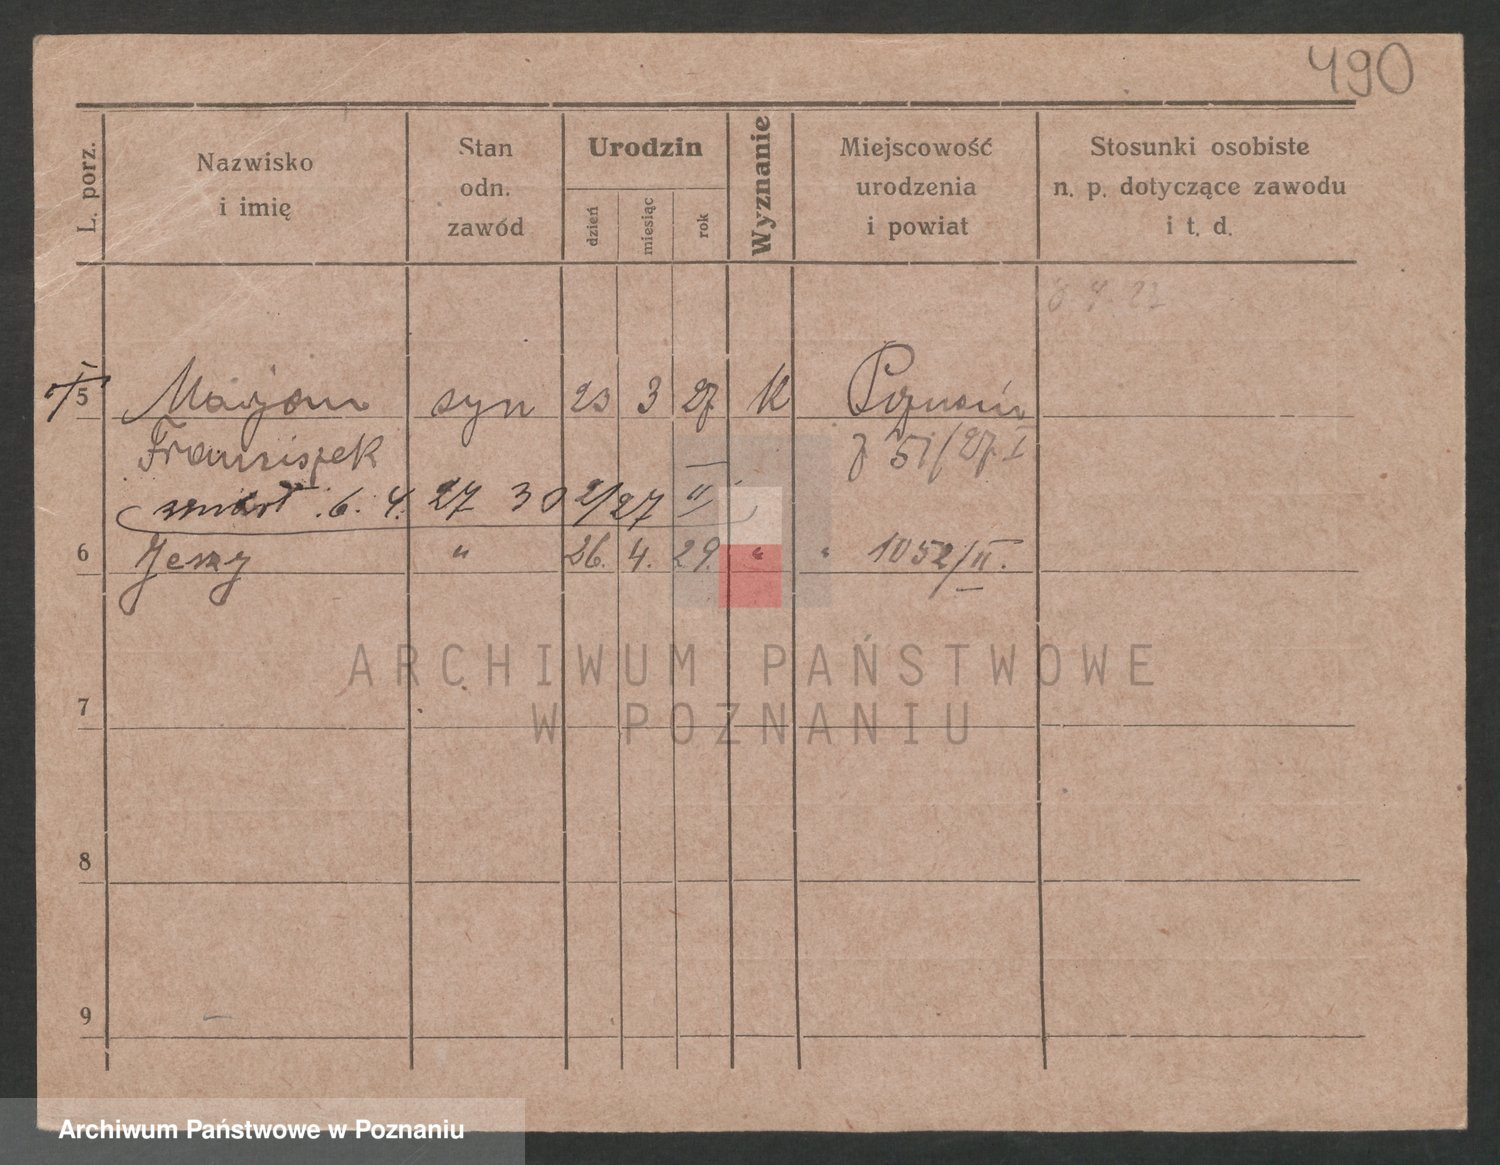 490
L. porz. Nazwisko i imię Stan odn. zawód Urodzin dzień miesiąc rok Wyznanie Miejscowość urodzenia i powiat Stosunki osobiste n. p. dotyczące zawodu i t. d.
8 4. 27
5 Marjan syn 23 3 27 K Poznań
Franciszek 51/27 I
zmarł 6. 4. 27 302/27 II
6 Jerzy " 26. 4. 29. " " 1052/II.
7
8
9
ARCHIWUM PAŃSTWOWE
W POZNANIU
Archiwum Państwowe w Poznaniu